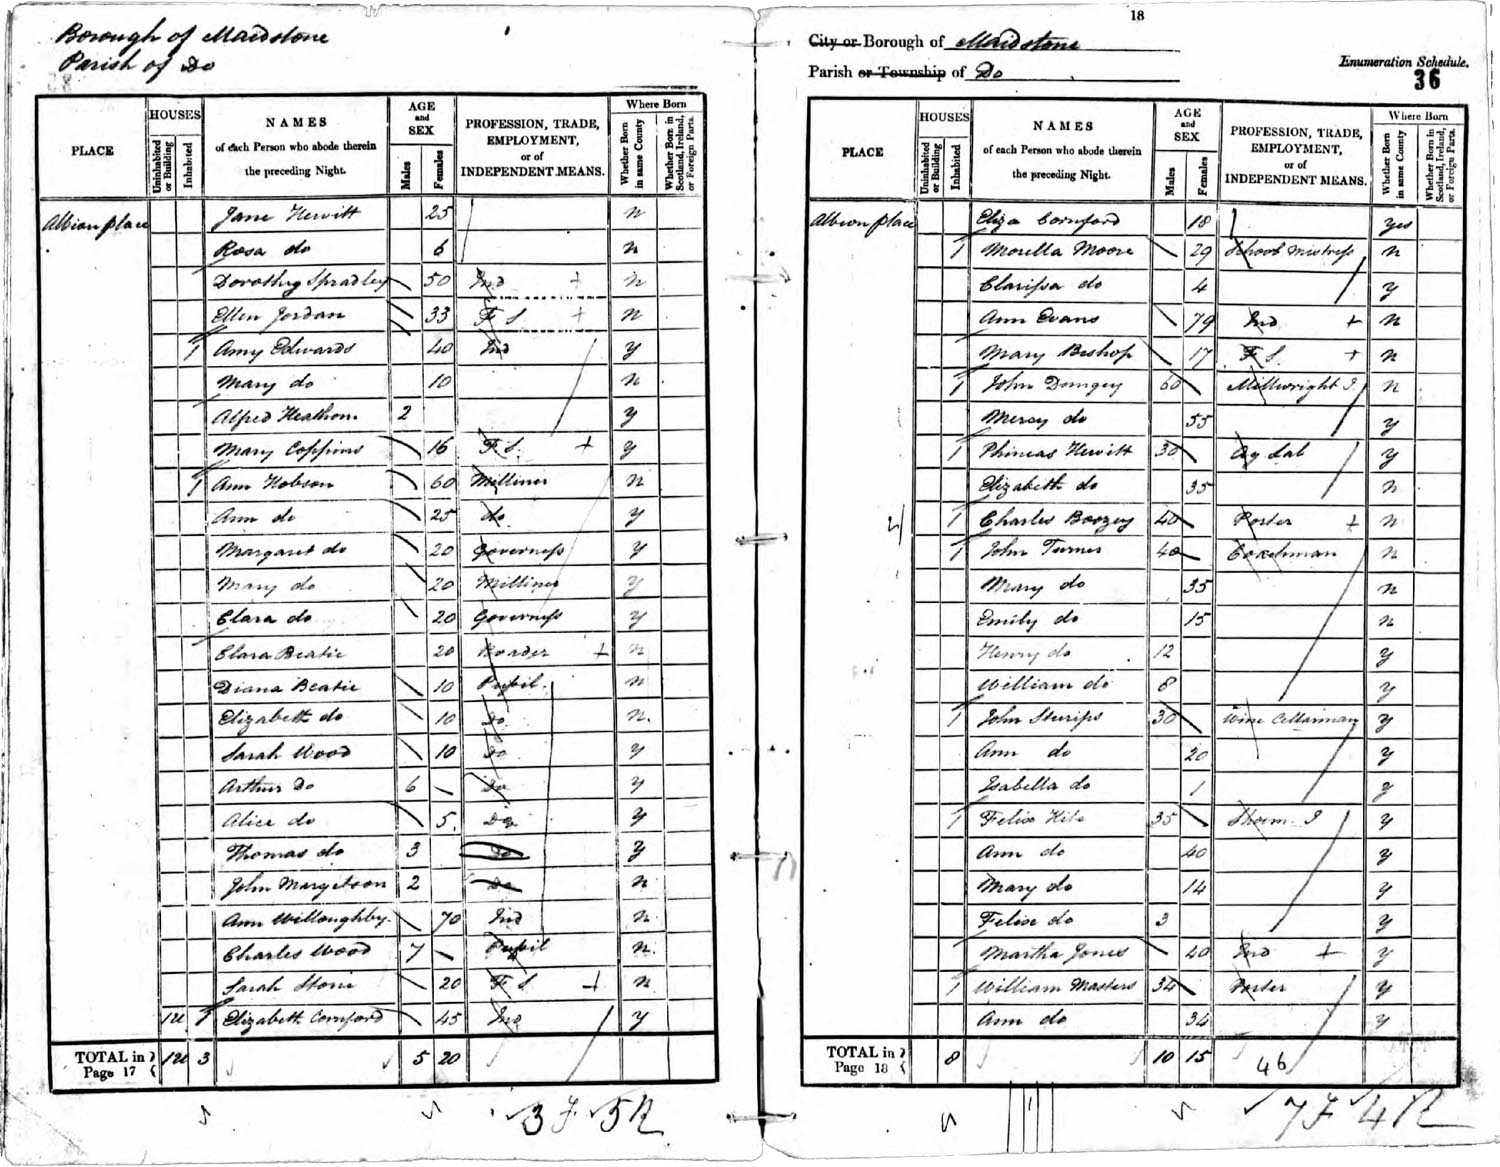 Borough of Maidstone
Parish of Do
PLACE HOUSES Uninhabited or Building Inhabited NAMES of each Person who abode therein the preceding Night. AGE and SEX Males Females PROFESSION, TRADE, EMPLOYMENT, or of INDEPENDENT MEANS. Where Born Whether Born in same County Whether Born in Scotland, Ireland, or Foreign Parts.
Albion place Jane Hewitt 25 n
Rosa do 6 n
Dorothy Spradley 50 Ind + n
Ellen Jordan 33 F S + n
1 Amy Edwards 40 Ind y
Mary do 10 n
Alfred 2 y
Mary Coppins 16 F.S. + y
1 Ann Hobson 60 Milliner n
Ann do 25 do y
Margaret do 20 Governess y
Mary do 20 Milliner y
Clara do 20 Governess y
Clara Beatie 20 Boarder + n
Diana Beatie 10 Pupil. n
Elizabeth do 10 Do n.
Sarah Wood 10 Do y
Arthur Do 6 Do y
Alice do 5. Do y
Thomas do 3 Do y
John Margetson 2 Do n
Ann Willoughby. 70 Ind n
Charles Wood 7 Pupil n
Sarah Stone 20 F S + n
1U 1 Elizabeth Cornford 45 Ind y
TOTAL in Page 17 1U 3 5 20
3 F 5 R
18
City or Borough of Maidstone
Parish or Township of Do
Enumeration Schedule.
36
PLACE HOUSES Uninhabited or Building Inhabited NAMES of each Person who abode therein the preceding Night. AGE and SEX Males Females PROFESSION, TRADE, EMPLOYMENT, or of INDEPENDENT MEANS. Where Born Whether Born in same County Whether Born in Scotland, Ireland, or Foreign Parts.
Albion place Eliza Cornford 18 yes
1 Morella Moore 29 School Mistress n
Clarissa do 4 y
Ann Evans 79 Ind + n
Mary Bishop 17 F.S. + n
1 John 60 Millwright J. n
Mercy do 55 y
1 Phineas Hewitt 30 Ag Lab y
Elizabeth do 35 n
1 Charles Boozey 40 Porter + n
1 John Turner 40 Coachman n
Mary do 35 n
Emily do 15 n
Henry do 12 y
William do 8 y
1 John 30 Wine Cellarman y
Ann do 20 y
Isabella do 1 y
1 Felix Hils 35 J y
Ann do 40 y
Mary do 14 y
Felix do 3 y
Martha Jones 40 Ind + y
1 William Masters 34 Porter y
Ann do 34 y
TOTAL in Page 18 8 10 15 46
7 F 4 R